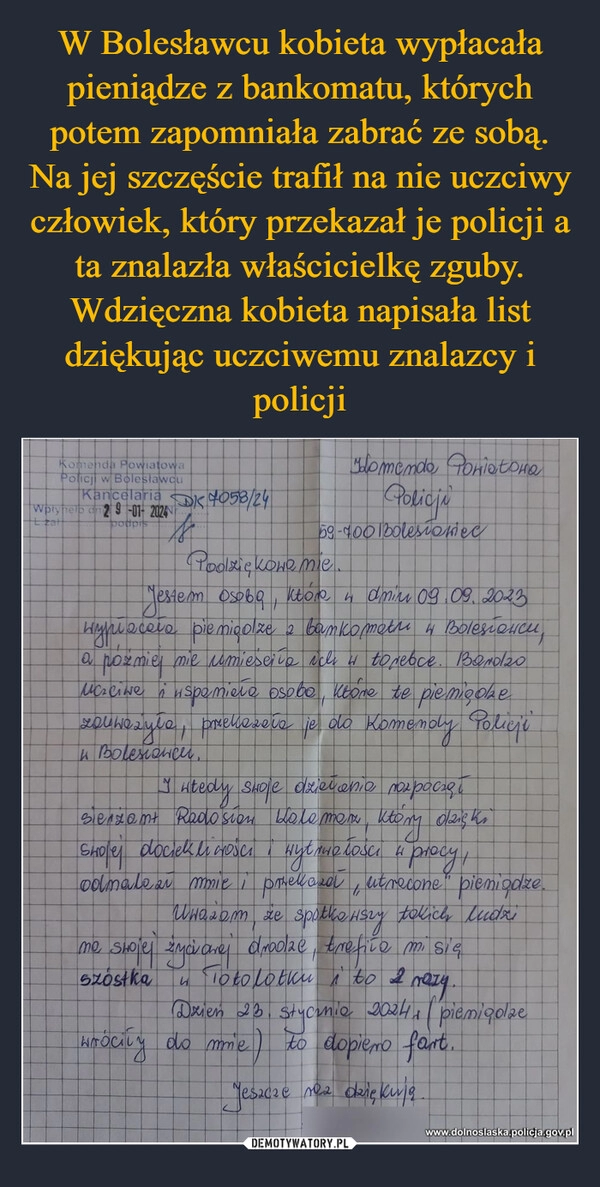 W Bolesławcu kobieta wypłacała
pieniądze z bankomatu, których
potem zapomniała zabrać ze sobą.
Na jej szczęście trafił na nie uczciwy
człowiek, który przekazał je policji a
ta znalazła właścicielkę zguby.
Wdzięczna kobieta napisała list
dziękując uczciwemu znalazcy i
policji
Komenda Powiatowa
Policji w Bolesławcu
Kancelaria
Wpłynęło dn. 29 -01- 2024
L.zał podpis
DK 7058/24
Komenda Powiatowa
Policji
59-700 Bolesławiec
Podziękowanie.
Jestem osobą, która w dniu 09.09.2023
wypłacała pieniądze z bankomatu w Bolesławcu,
a później nie umieściła ich w torebce. Bardzo
uczciwa i wspaniała osoba, która te pieniądze
zauważyła, przekazała je do Komendy Policji
w Bolesławcu.
I wtedy swoje działania rozpoczął
sierżant Radosław który dzięki
swojej dociekliwości i wytrwałości w pracy,
odnalazł mnie i przekazał „utracone" pieniądze.
Uważam, że spotkawszy takich ludzi
na swojej życiowej drodze, trafiła mi się
szóstka w Totolotku i to 2 razy.
Dzień 23. stycznia 2024 r (pieniądze
wróciły do mnie) to dopiero fart.
Jeszcze raz dziękuję.
www.dolnoslaska.policja.gov.pl
DEMOTYWATORY.PL